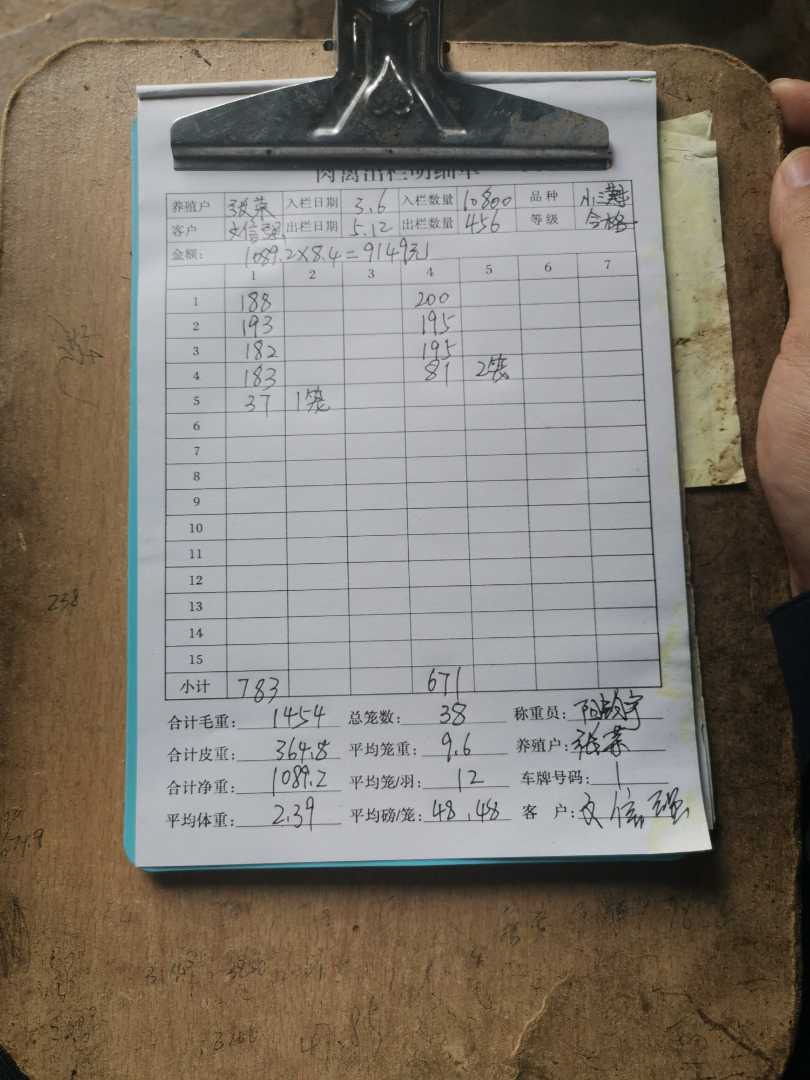 肉禽出栏明细单
养殖户 张荣 入栏日期 3.6 入栏数量 10800 品种
客户 文信强 出栏日期 5.12 出栏数量 456 等级 合格
金额: 1089.2×8.4=9149元
1 2 3 4 5 6 7
1 188 200
2 193 195
3 182 195
4 183 81 2笼
5 37 1笼
6
7
8
9
10
11
12
13
14
15
小计 783 671
合计毛重: 1454 总笼数: 38 称重员:
合计皮重: 364.8 平均笼重: 9.6 养殖户: 张荣
合计净重: 1089.2 平均笼/羽: 12 车牌号码: 1
平均体重: 2.39 平均磅/笼: 48.48 客户: 文信强
238